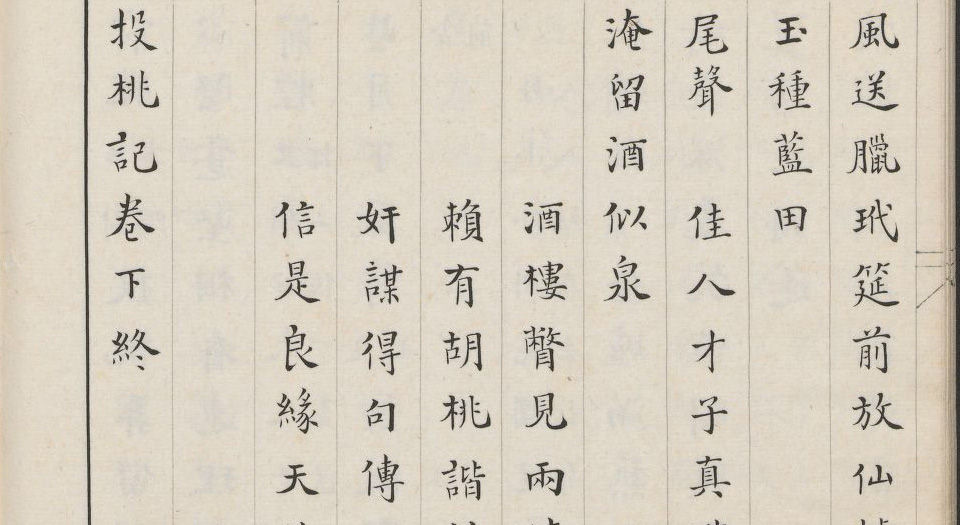 風送臘玳筵前放仙
玉種藍田
尾聲佳人才子真
淹留酒似泉
酒樓瞥見兩
賴有胡桃諧
奸謀得句傳
信是良緣天
投桃記卷下終